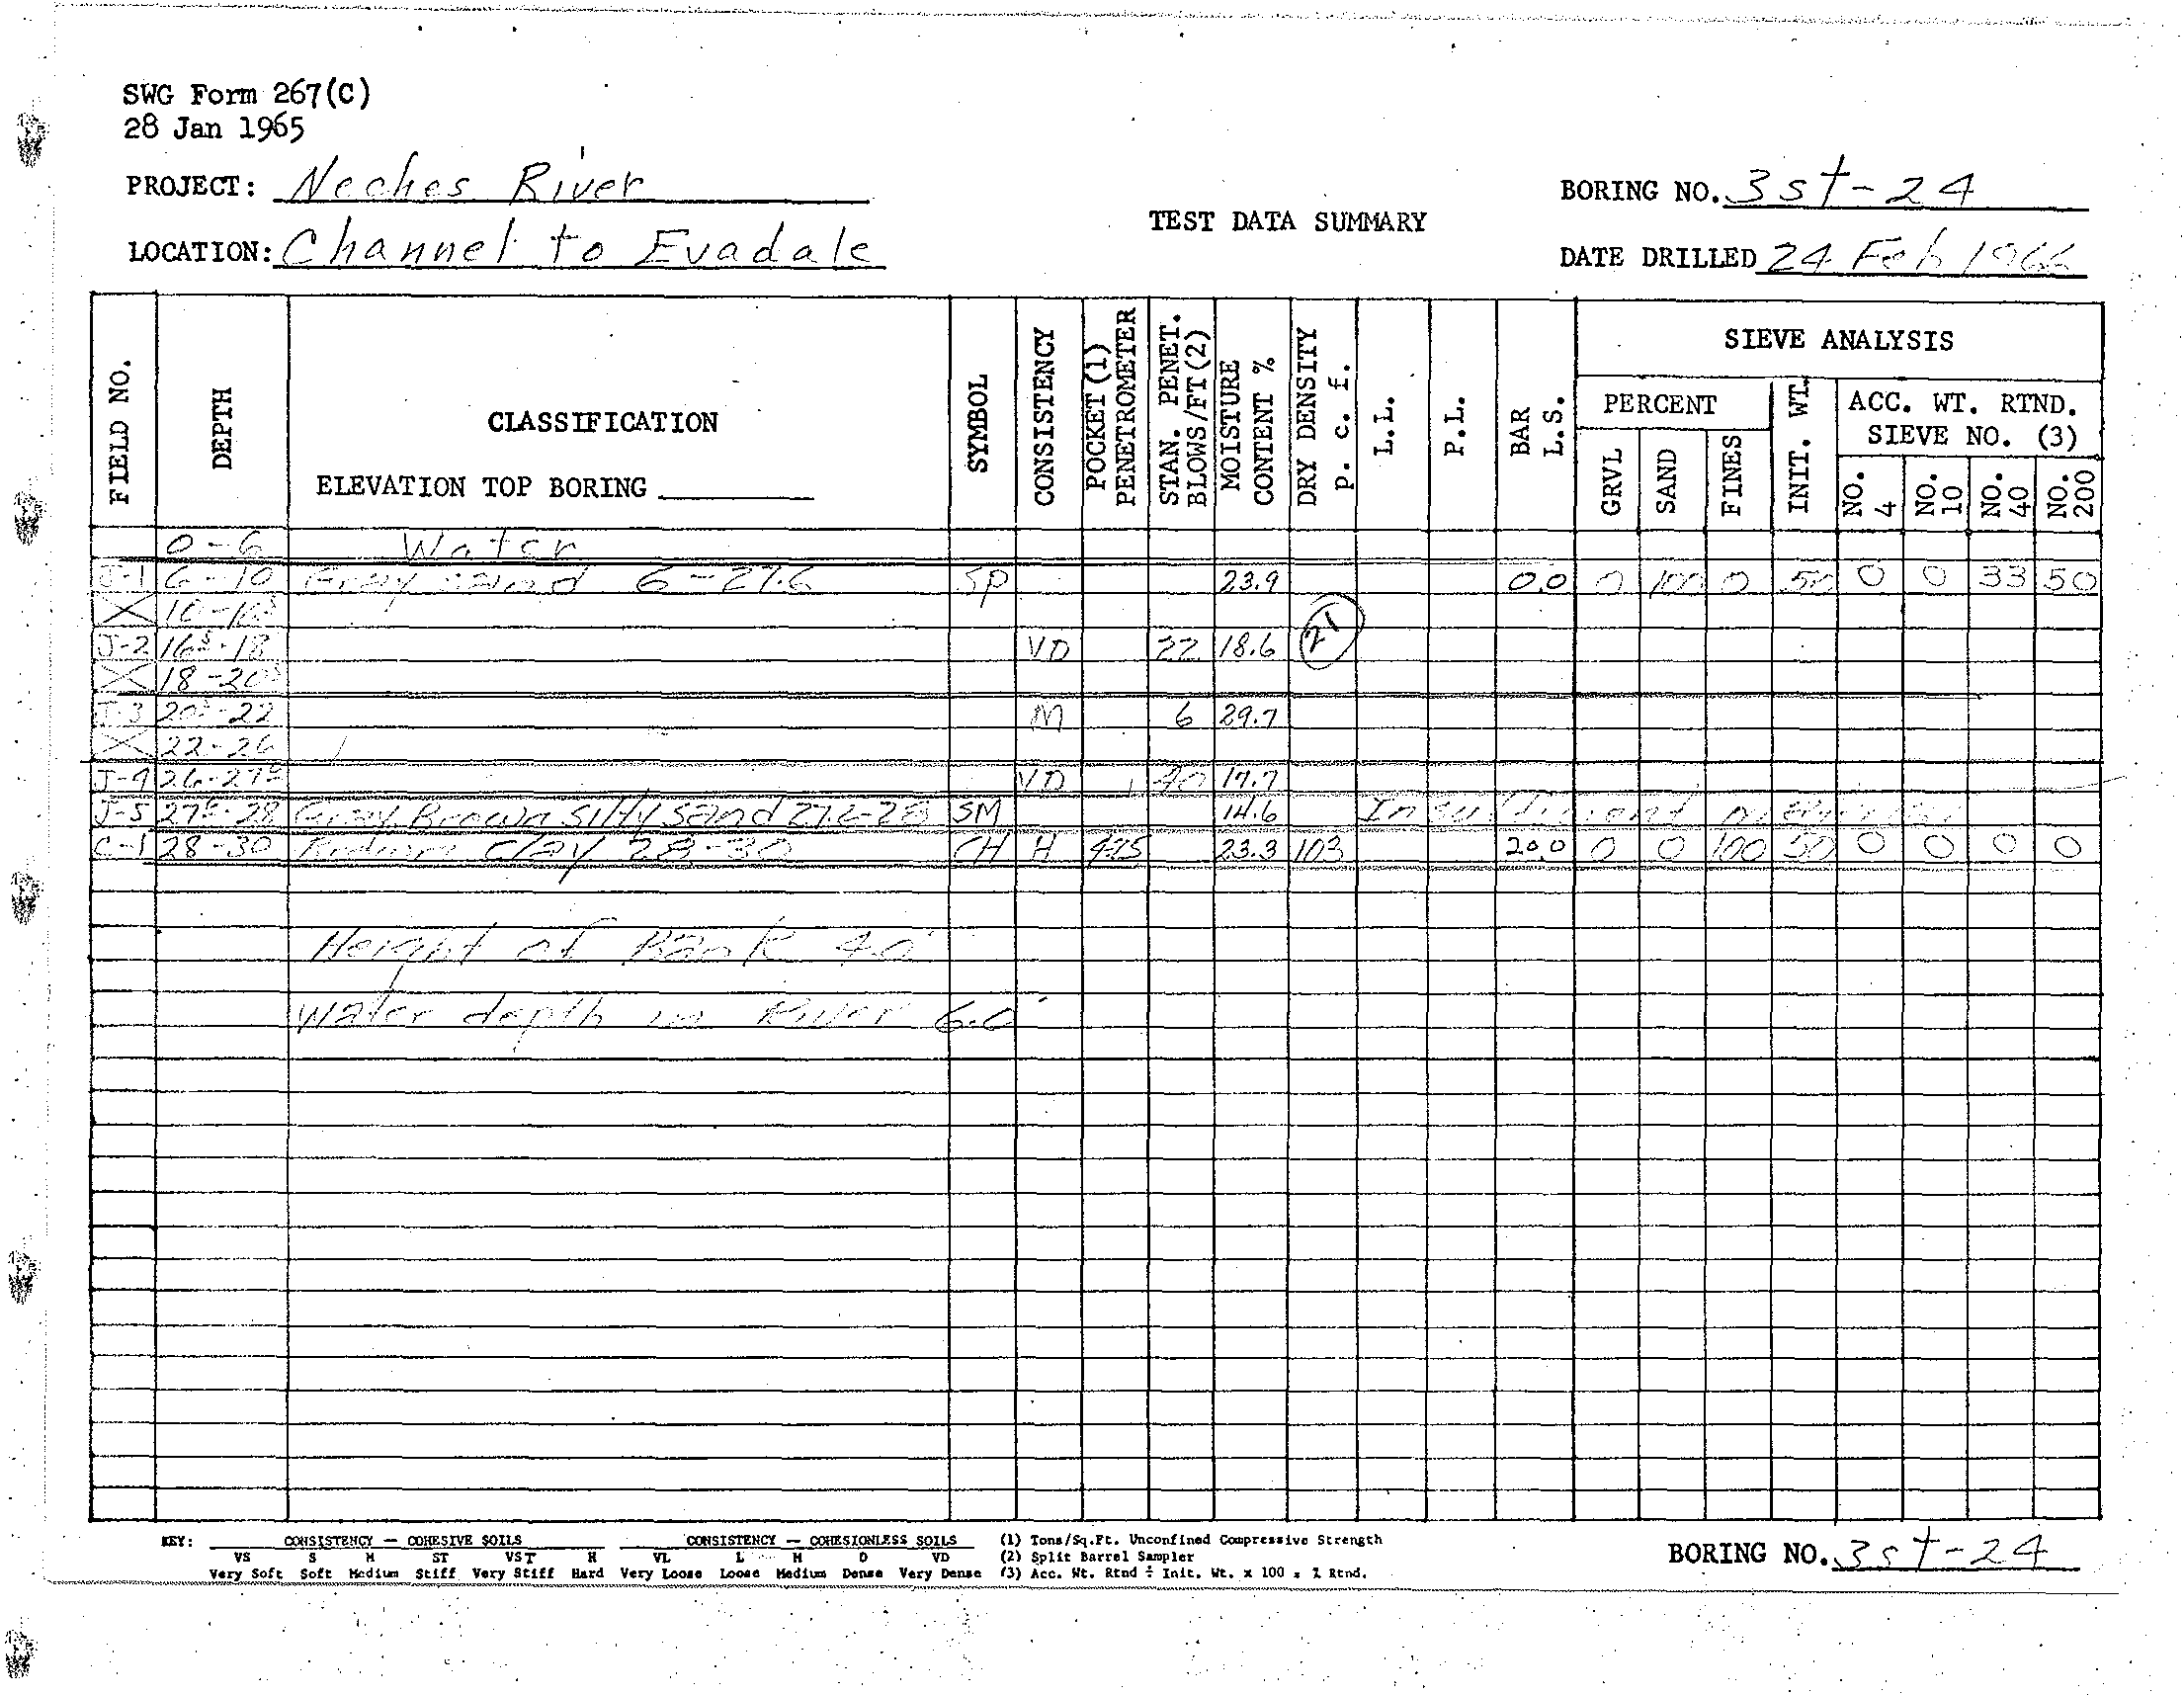 SWG Form 267(C)
28 Jan 1965
PROJECT: Neches River
BORING NO. 3st-24
TEST DATA SUMMARY
LOCATION: Channel to Evadale
DATE DRILLED 24 Feb 1966
FIELD NO.
DEPTH
CLASSIFICATION
ELEVATION TOP BORING
SYMBOL
CONSISTENCY
POCKET (1)
PENETROMETER
STAN. PENET.
BLOWS/FT (2)
MOISTURE
CONTENT %
DRY DENSITY
p. c. f.
L.L.
P.L.
BAR
L.S.
SIEVE ANALYSIS
PERCENT
GRVL
SAND
FINES
INIT. WT.
ACC. WT. RTND.
SIEVE NO. (3)
NO. 4
NO. 10
NO. 40
NO. 200
0-6 Water
J-1 6-10 Gray sand 6-27.6 SP 23.9 0.0 0 100 0 50 0 0 33 50
J-2 16.5-18 VD 22 18.6 21
18-20.5
J-3 20.5-22 M 6 29.7
22-26
J-4 26-27.6 VD 40 17.7
J-5 27.6-28 Gray Brown silty sand 27.6-28 SM 14.6 Insufficient material
C-1 28-30 clay 28-30 CH H 4.25 23.3 103 20.0 0 0 100 50 0 0 0 0
Height of Bank 4.0'
Water depth in River 6.0'
KEY:
CONSISTENCY — COHESIVE SOILS
VS S M ST VST H
Very Soft Soft Medium Stiff Very Stiff Hard
CONSISTENCY — COHESIONLESS SOILS
VL L M D VD
Very Loose Loose Medium Dense Very Dense
(1) Tons/Sq.Ft. Unconfined Compressive Strength
(2) Split Barrel Sampler
(3) Acc. Wt. Rtnd ÷ Init. Wt. x 100 = % Rtnd.
BORING NO. 3st-24